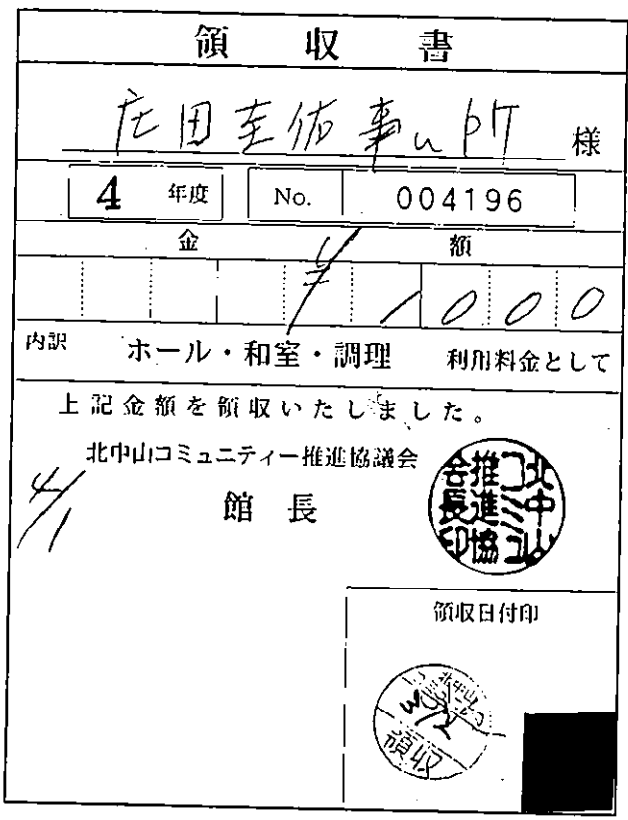 領収書
庄田圭佑事ム所 様
4 年度 No. 004196
金額
¥10000
内訳 ホール・和室・調理 利用料金として
上記金額を領収いたしました。
北中山コミュニティー推進協議会
4/1
館長
北中山コミ推進協会長印
領収日付印
北中山
3/2
領収